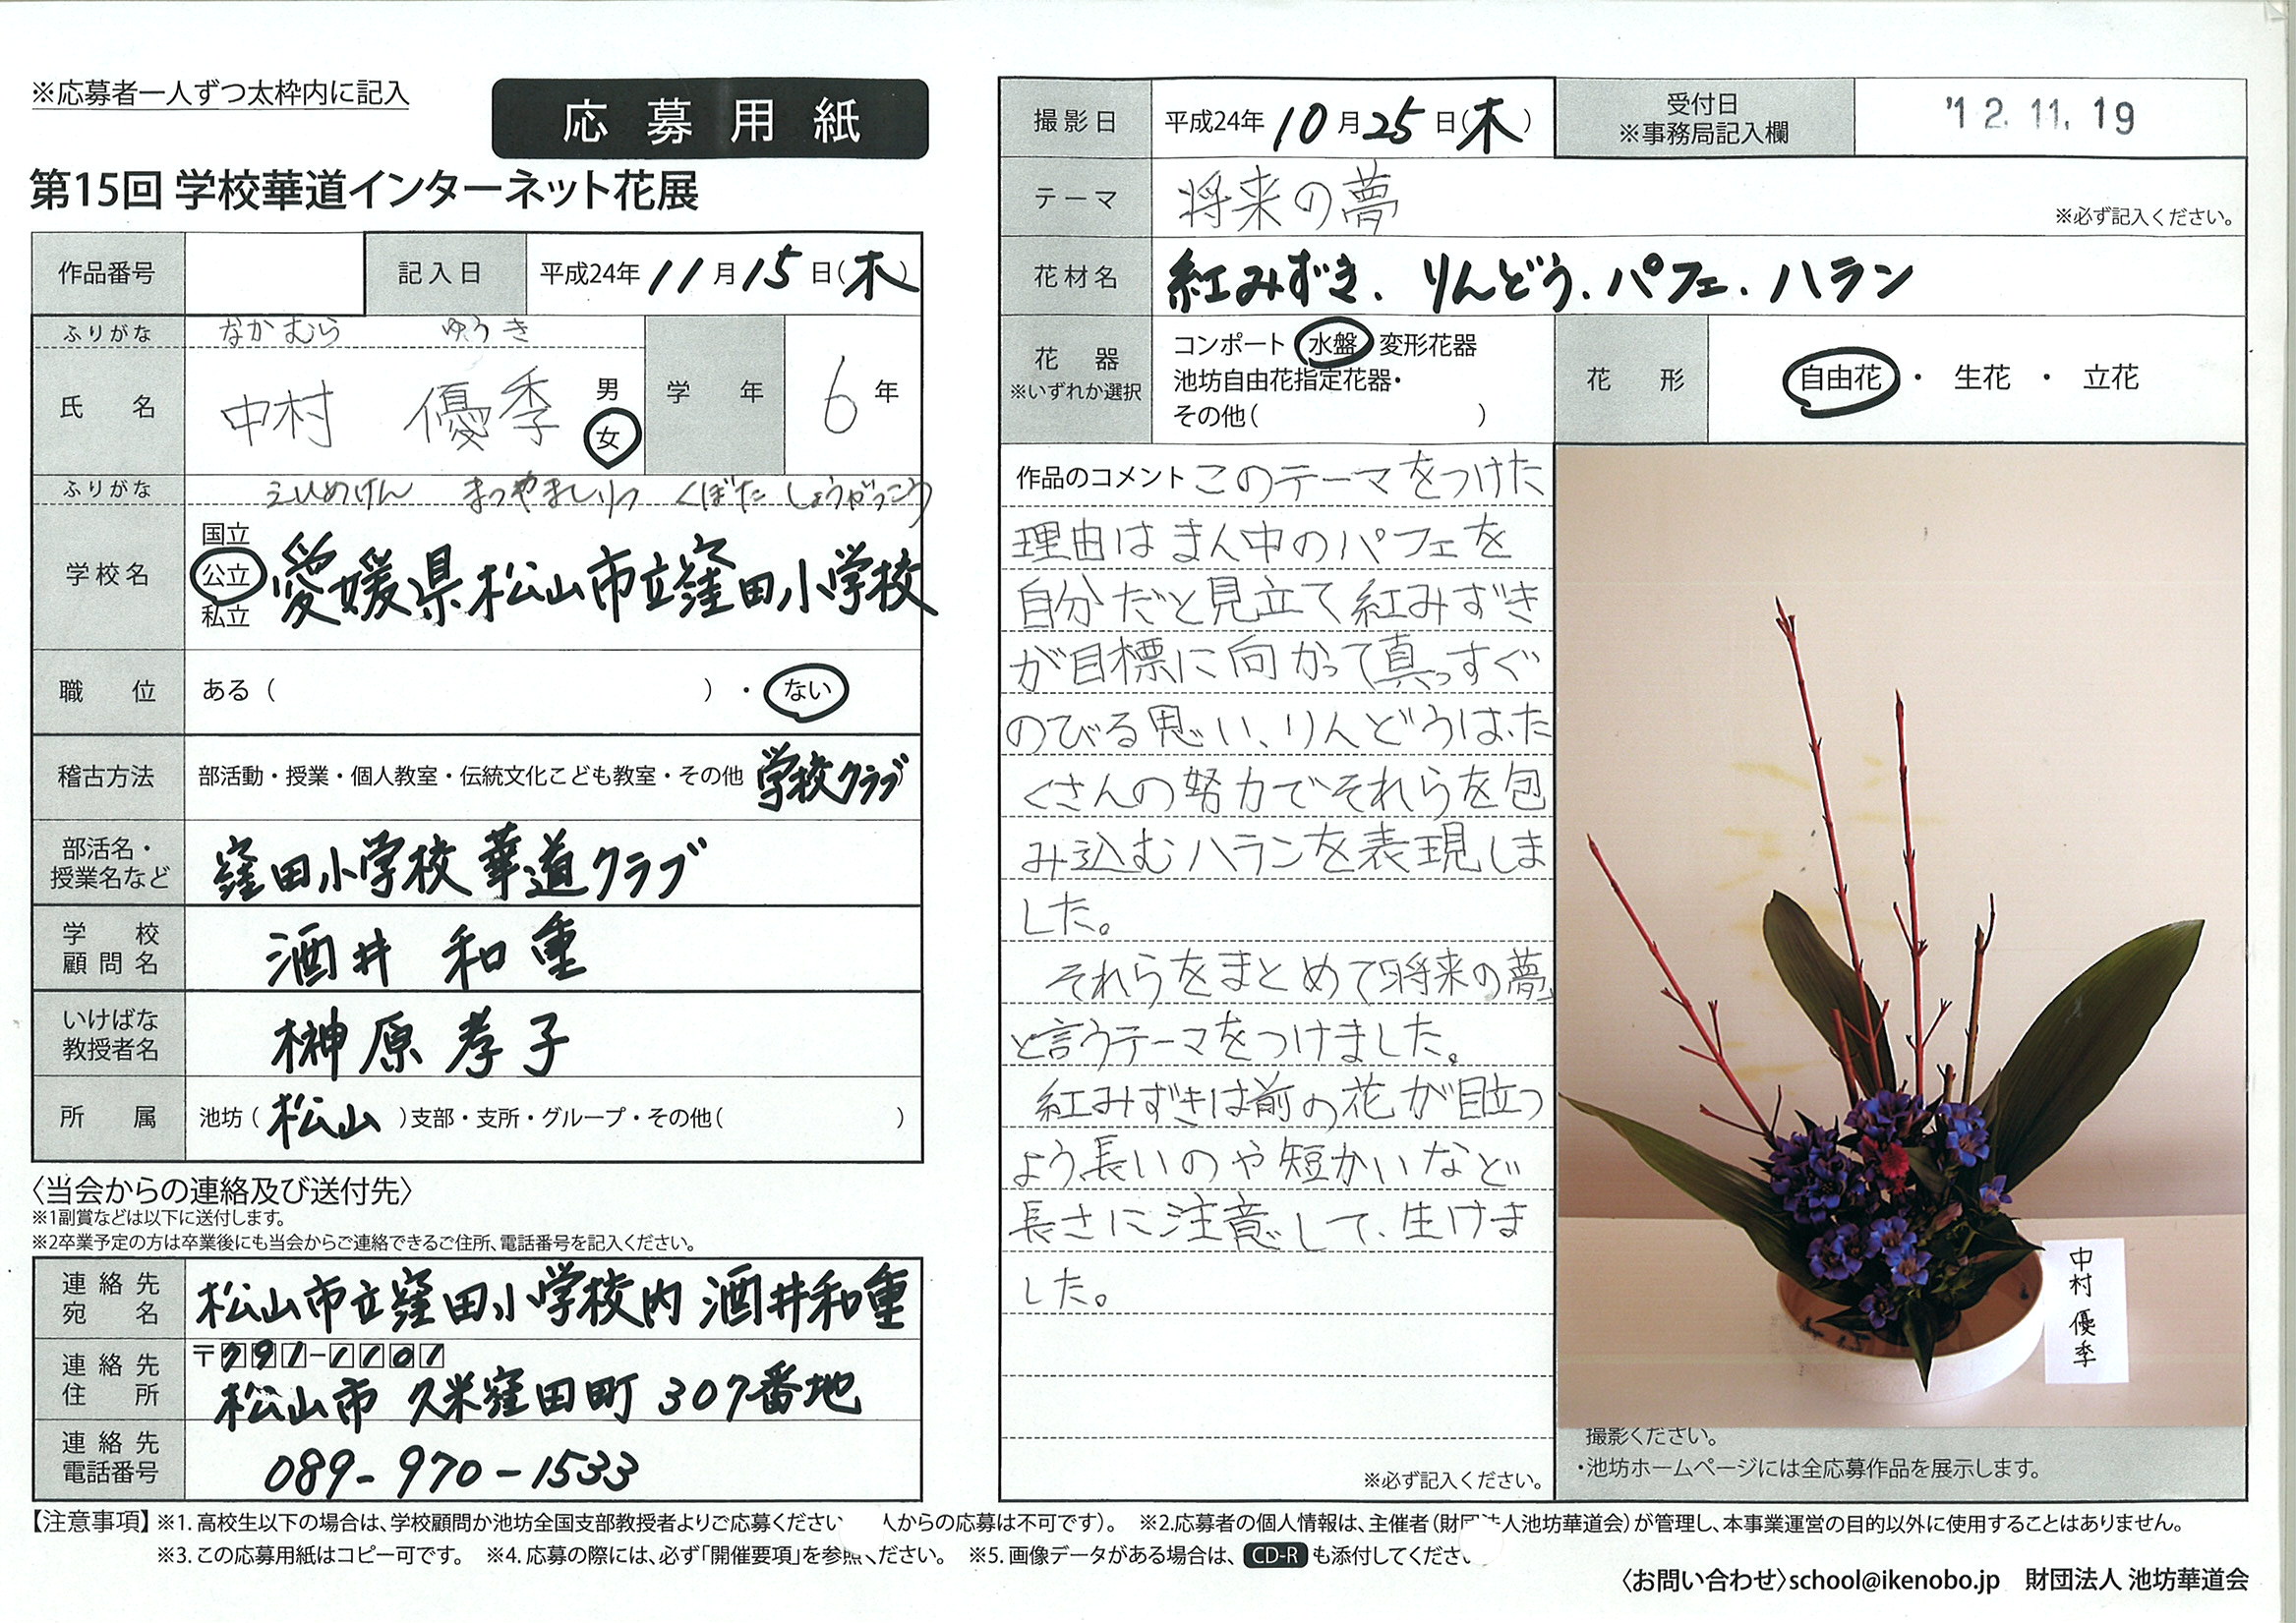 ※応募者一人ずつ太枠内に記入
応募用紙
第15回 学校華道インターネット花展
作品番号
記入日 平成24年11月15日(木)
ふりがな なかむら ゆうき
氏名 中村 優季 男 女
学年 6年
ふりがな えひめけん まつやましりつ くぼた しょうがっこう
学校名 国立 公立 私立 愛媛県松山市立窪田小学校
職位 ある( )・ない
稽古方法 部活動・授業・個人教室・伝統文化こども教室・その他 学校クラブ
部活名・授業名など 窪田小学校華道クラブ
学校顧問名 酒井 和重
いけばな教授者名 榊原 孝子
所属 池坊(松山)支部・支所・グループ・その他( )
〈当会からの連絡及び送付先〉
※1副賞などは以下に送付します。
※2卒業予定の方は卒業後にも当会からご連絡できるご住所、電話番号を記入ください。
連絡先宛名 松山市立窪田小学校内 酒井和重
連絡先住所 〒791-1101
松山市 久米窪田町 307番地
連絡先電話番号 089-970-1533
撮影日 平成24年10月25日(木)
受付日
※事務局記入欄
'12.11.19
テーマ 将来の夢
※必ず記入ください。
花材名 紅みずき．りんどう．パフェ．ハラン
花器
※いずれか選択
コンポート 水盤 変形花器
池坊自由花指定花器・
その他( )
花形 自由花・生花・立花
作品のコメント このテーマをつけた
理由はまん中のパフェを
自分だと見立て紅みずき
が目標に向かって真っすぐ
のびる思い、りんどうは、た
くさんの努力でそれらを包
み込むハランを表現しま
した。
それらをまとめて「将来の夢」
と言うテーマをつけました。
紅みずきは前の花が目立つ
よう長いのや短かいなど
長さに注意して、生けま
した。
※必ず記入ください。
中村 優季
撮影ください。
・池坊ホームページには全応募作品を展示します。
【注意事項】※1.高校生以下の場合は、学校顧問か池坊全国支部教授者よりご応募ください 人からの応募は不可です)。 ※2.応募者の個人情報は、主催者(財団法人池坊華道会)が管理し、本事業運営の目的以外に使用することはありません。
※3.この応募用紙はコピー可です。 ※4.応募の際には、必ず「開催要項」を参照ください。 ※5.画像データがある場合は、CD-Rも添付してください
〈お問い合わせ〉school@ikenobo.jp 財団法人 池坊華道会